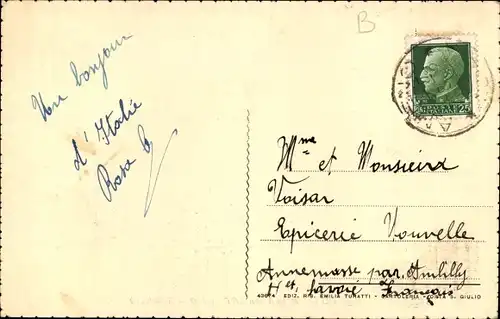 B
Un bonjour
d'Italie
Rosa B
Mme et Monsieur
Voisar
Epicerie Nouvelle
Annemasse par Ambilly
Hte Savoie Français
43674 EDIZ. RIS. EMILIA TURATTI - CARTOLERIA - ORTA S. GIULIO